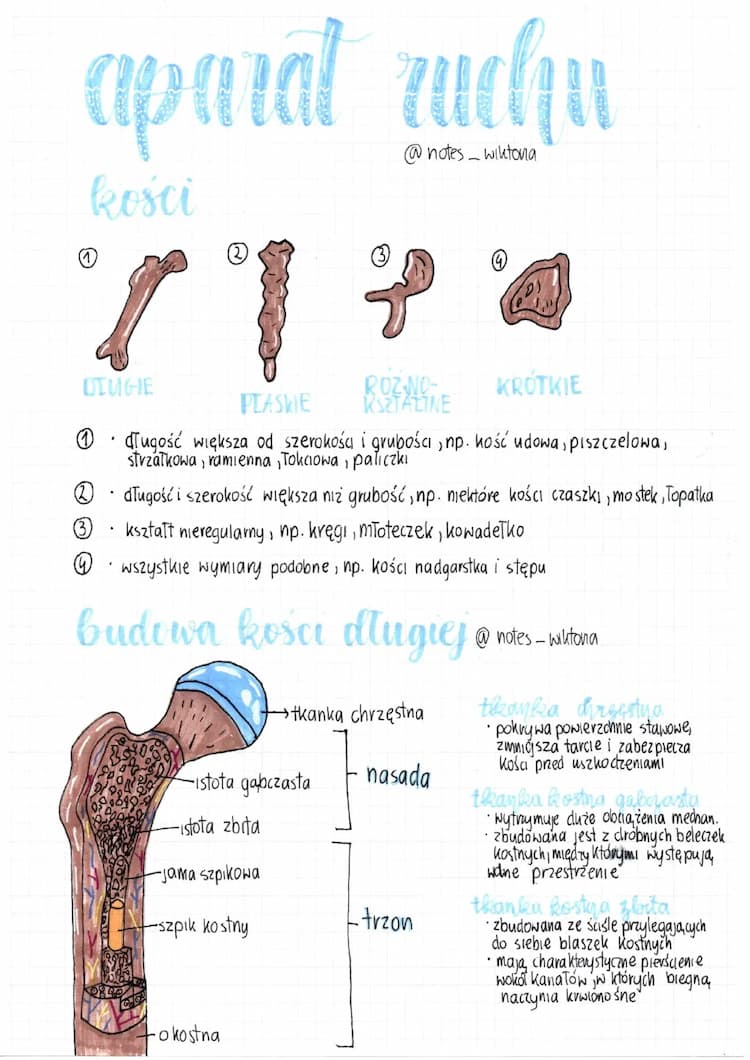 aparat ruchu
@notes_wiktoria
kości
1 2 3 4
DŁUGIE PŁASKIE RÓŻNO-KSZTAŁTNE KRÓTKIE
1 · długość większa od szerokości i grubości, np. kość udowa, piszczelowa,
strzałkowa, ramienna, łokciowa, paliczki
2 · długość i szerokość większa niż grubość, np. niektóre kości czaszki, mostek, łopatka
3 · kształt nieregularny, np. kręgi, młoteczek, kowadełko
4 · wszystkie wymiary podobne, np. kości nadgarstka i stępu
budowa kości długiej @notes_wiktoria
tkanka chrzęstna
istota gąbczasta
nasada
istota zbita
jama szpikowa
szpik kostny
trzon
okostna
tkanka chrzęstna
· pokrywa powierzchnie stawowe,
zmniejsza tarcie i zabezpiecza
kości przed uszkodzeniami
tkanka kostna gąbczasta
· wytrzymuje duże obciążenia mechan.
· zbudowana jest z drobnych beleczek
kostnych, między którymi występują
wolne przestrzenie
tkanka kostna zbita
· zbudowana ze ściśle przylegających
do siebie blaszek kostnych
· mają charakterystyczne pierścienie
wokół kanałów, w których biegną
naczynia krwionośne